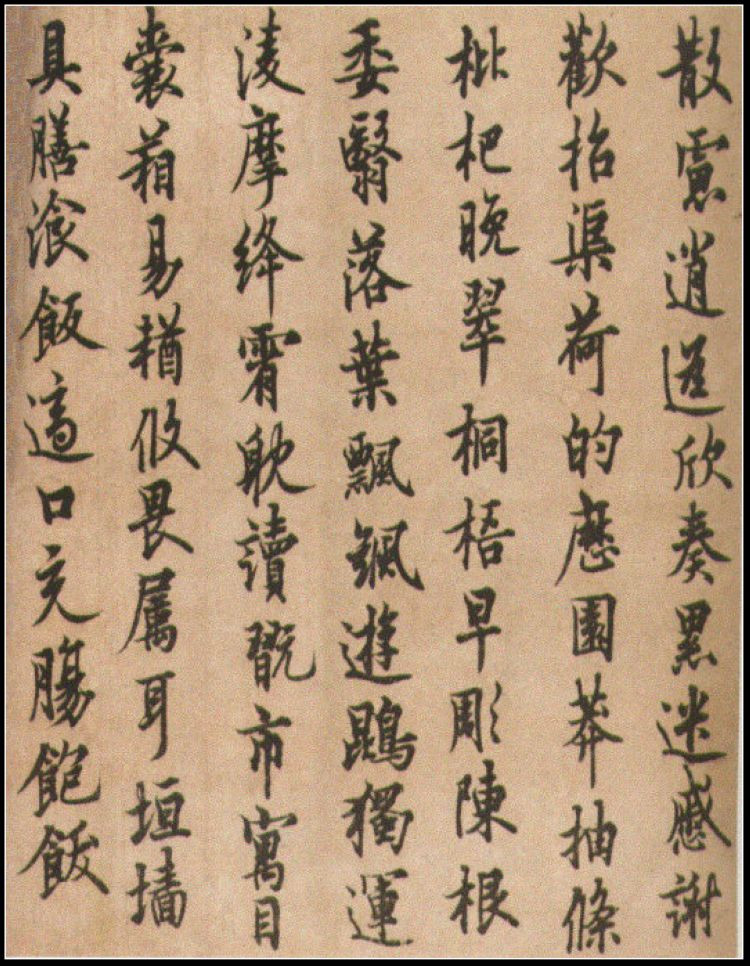 散慮逍遥欣奏累迷慼謝
歡招渠荷的歷園莽抽條
枇杷晚翠桐梧早彫陳根
委翳落葉飄颻遊鵾獨運
凌摩絳霄耽讀翫市寓目
囊箱易輶攸畏屬耳垣墻
具膳湌飯適口充腸飽飫